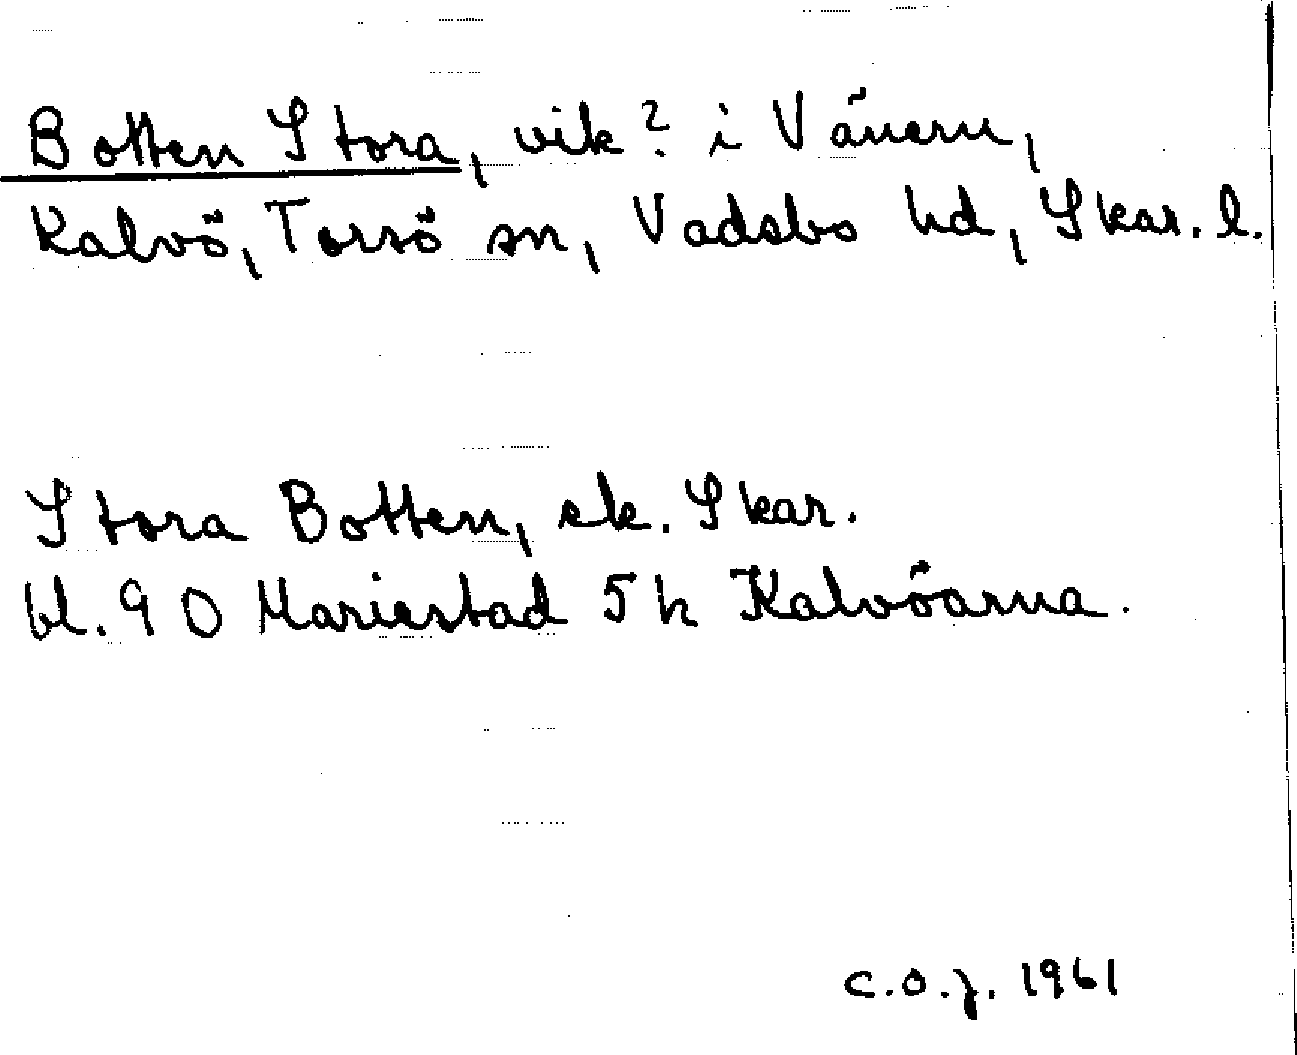 Botten Stora, vik? i Vänern,
Kalvö, Torsö sn, Vadsbo hd, Skar. l.
Stora Botten, ek. Skar.
bl. 90 Mariestad 5h Kalvöarna.
C.O.J. 1961